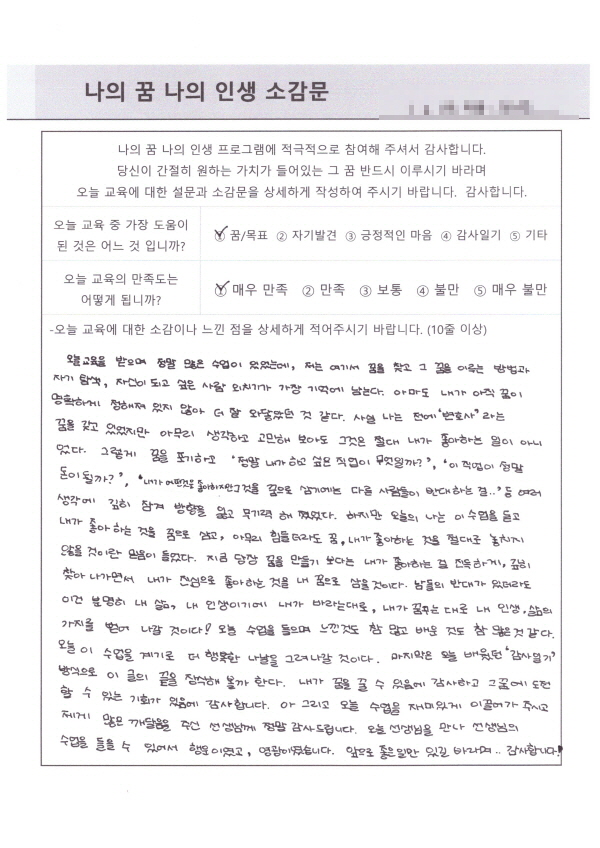 나의 꿈 나의 인생 소감문
나의 꿈 나의 인생 프로그램에 적극적으로 참여해 주셔서 감사합니다.
당신이 간절히 원하는 가치가 들어있는 그 꿈 반드시 이루시기 바라며
오늘 교육에 대한 설문과 소감문을 상세하게 작성하여 주시기 바랍니다. 감사합니다.
오늘 교육 중 가장 도움이
된 것은 어느 것 입니까?
① 꿈/목표 ② 자기발견 ③ 긍정적인 마음 ④ 감사일기 ⑤ 기타
오늘 교육의 만족도는
어떻게 됩니까?
① 매우 만족 ② 만족 ③ 보통 ④ 불만 ⑤ 매우 불만
-오늘 교육에 대한 소감이나 느낀 점을 상세하게 적어주시기 바랍니다. (10줄 이상)
오늘 교육을 받으며 정말 많은 수업이 있었는데, 저는 여기서 꿈을 찾고 그 꿈을 이루는 방법과
자기 탐색, 자신이 되고 싶은 사람 외치기가 가장 기억에 남는다. 아마도 내가 아직 꿈이
명확하게 정해져 있지 않아 더 잘 와닿았던 것 같다. 사실 나는 전에 '변호사' 라는
꿈을 갖고 있었지만 아무리 생각하고 고민해 보아도 그것은 절대 내가 좋아하는 일이 아니
었다. 그렇게 꿈을 포기하고 '정말 내가 하고 싶은 직업이 무엇일까?', '이 직업이 정말
돈이 될까?', '내가 어떤것을 좋아하지만 그것을 꿈으로 삼기에는 다른 사람들이 반대하는 걸..' 등 여러
생각에 깊히 잠겨 방향을 잃고 무기력 해 졌었다. 하지만 오늘의 나는 이 수업을 듣고
내가 좋아 하는 것을 꿈으로 삼고, 아무리 힘들더라도 꿈, 내가 좋아하는 것을 절대로 놓치지
않을 것이란 믿음이 들었다. 지금 당장 꿈을 만들기 보다는 내가 좋아하는 걸 진득하게, 깊히
찾아 나가면서 내가 진심으로 좋아하는 것을 내 꿈으로 삼을 것이다. 남들의 반대가 있더라도
이건 분명히 내 삶, 내 인생이기에 내가 바라는대로, 내가 꿈꾸는 대로 내 인생, 삶의
가지를 뻗어 나갈 것이다! 오늘 수업을 들으며 느낀것도 참 많고 배운 것도 참 많은것 같다.
오늘 이 수업을 계기로 더 행복한 나날을 그려나갈 것이다. 마지막은 오늘 배웠던 '감사일기'
방식으로 이 글의 끝을 장식해 볼까 한다. 내가 꿈을 꿀 수 있음에 감사하고 그 꿈에 도전
할 수 있는 기회가 있음에 감사합니다. 아 그리고 오늘 수업을 재미있게 이끌어가 주시고
저에게 많은 깨달음을 주신 선생님께 정말 감사드립니다. 오늘 선생님을 만나 선생님의
수업을 들을 수 있어서 행운이였고, 영광이었습니다. 앞으로 좋은일만 있길 바라며.. 감사합니다!